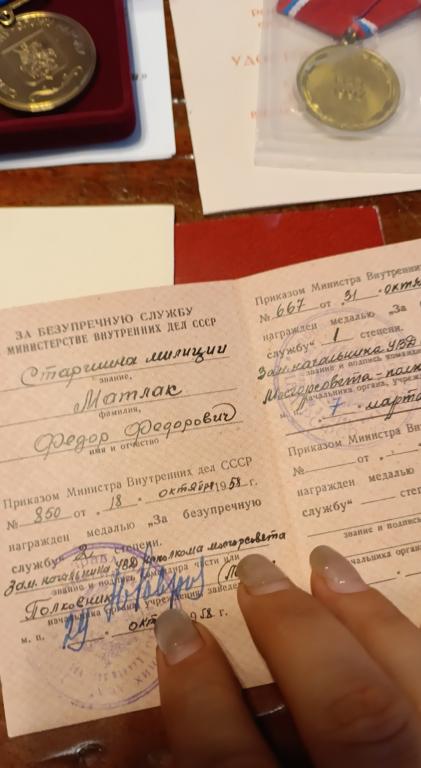 УДО
ЗА БЕЗУПРЕЧНУЮ СЛУЖБУ
МИНИСТЕРСТВЕ ВНУТРЕННИХ ДЕЛ СССР
Старшина милиции
звание,
Матлак
фамилия,
Федор Федорович
имя и отчество
Приказом Министра Внутренних дел СССР
№ 850 от „18 " октября 1958 г.
награжден медалью „За безупречную
службу" 2 степени.
Зам. начальника УВД исполкома Мосгорсовета
звание и подпись командира части или
Полковник
начальника органа, учреждения
м. п. окт 1958 г.
Приказом Министра Внутренних
№ 667 от „31 "
награжден медалью „За
службу" 1 степени.
Зам. начальника УВД
звание и подпись
Мосгорсовета-
начальника органа,
7 марта
Приказом Министра Внутрен
№ от
награжден медалью
службу" степени
звание и подпись
начальника орган